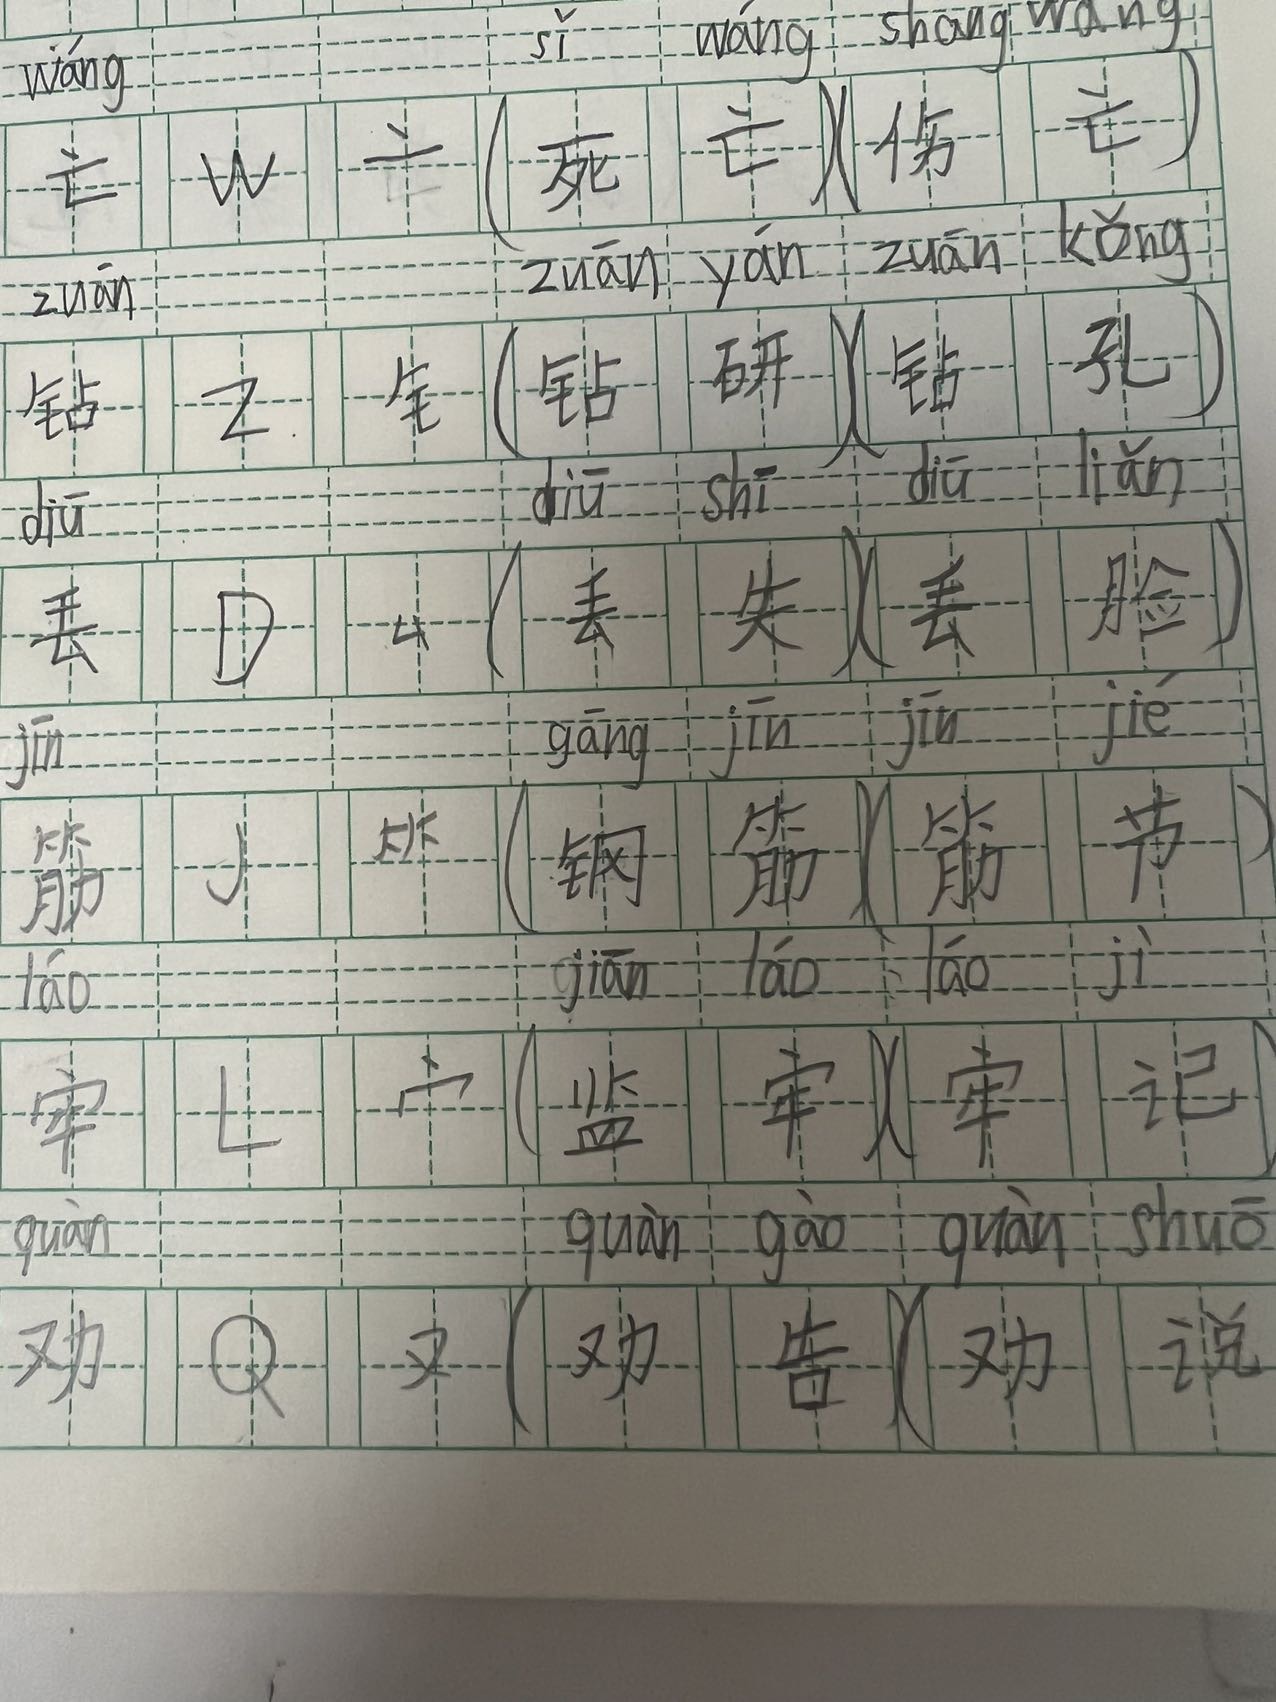 wáng sǐ wáng shāng wáng
亡 W 亠 (死 亡)(伤 亡)
zuān zuān yán zuān kǒng
钻 Z 钅 (钻 研)(钻 孔)
diū diū shī diū liǎn
丢 D 厶 (丢 失)(丢 脸)
jīn gāng jīn jīn jié
筋 J ⺮ (钢 筋)(筋 节)
láo jiān láo láo jì
牢 L 宀 (监 牢)(牢 记)
quàn quàn gào quàn shuō
劝 Q 又 (劝 告)(劝 说